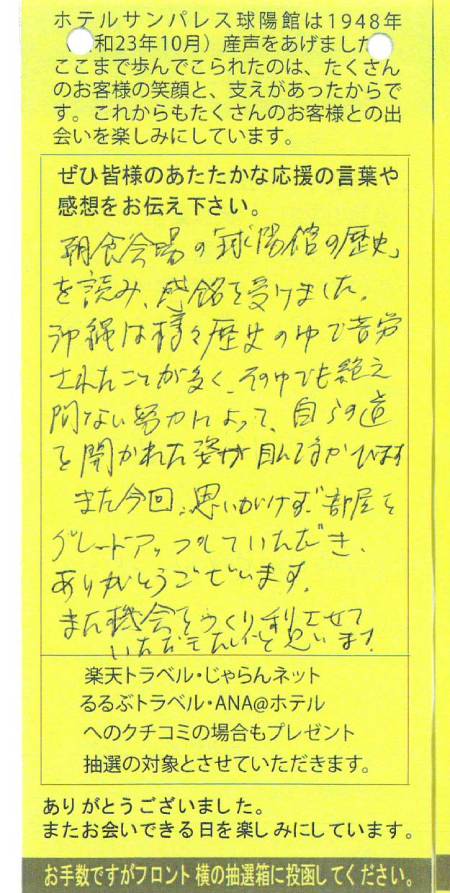 ホテルサンパレス球陽館は1948年
和23年10月）産声をあげました
ここまで歩んでこられたのは、たくさん
のお客様の笑顔と、支えがあったからで
す。これからもたくさんのお客様との出
会いを楽しみにしています。
ぜひ皆様のあたたかな応援の言葉や
感想をお伝え下さい。
朝食会場の「球陽館の歴史」
を読み、感銘を受けました。
沖縄は様々歴史の中で苦労
されたことが多く、その中でも絶え
間ない努力によって、自らの道
を開かれた姿が目にうかびます
また今回、思いがけず部屋を
グレードアップしていただき、
ありがとうございます。
また機会をつくり利用させて
いただきたいと思います。
楽天トラベル・じゃらんネット
るるぶトラベル・ANA@ホテル
へのクチコミの場合もプレゼント
抽選の対象とさせていただきます。
ありがとうございました。
またお会いできる日を楽しみにしています。
お手数ですがフロント横の抽選箱に投函してください。